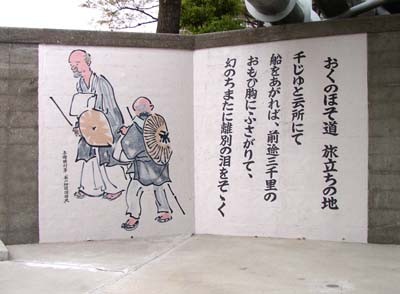 おくのほそ道 旅立ちの地
千じゆと云所にて
船をあがれば、前途三千里の
おもひ胸にふさがりて、
幻のちまたに離別の泪をそゝく